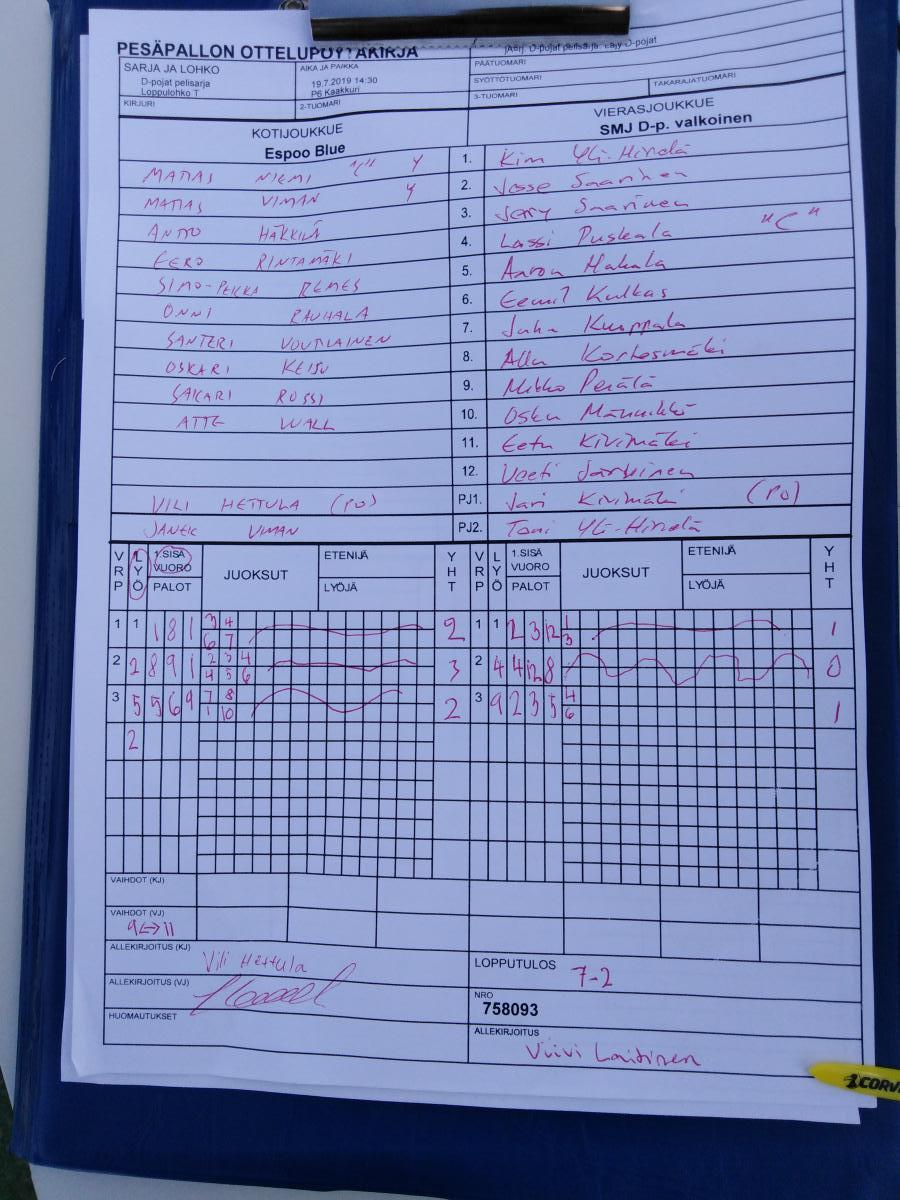 PESÄPALLON OTTELUPÖYTÄKIRJA
SARJA JA LOHKO
D-pojat pelisarja
Loppulohko T
AIKA JA PAIKKA
19.7.2019 14:30
P6 Kaakkuri
PÄÄTUOMARI
SYÖTTÖTUOMARI
TAKARAJATUOMARI
KIRJURI
2-TUOMARI
3-TUOMARI
KOTIJOUKKUE
Espoo Blue
VIERASJOUKKUE
SMJ D-p. valkoinen
MATIAS NIEMI "C" Y 1. Kim Yli-Hirvelä
MATIAS VIMAN Y 2. Josse Saarinen
ANTTO HÄKKILÄ 3. Jery Saarinen
EERO RINTAMÄKI 4. Lassi Puskala "C"
SIMO-PEKKA REMES 5. Aaron Hakala
ONNI RAUHALA 6. Eemil Kulkas
SANTERI VOUTILAINEN 7. Juha Kumppala
OSKARI KEISU 8.
SAKARI ROSSI 9. Mikko Perälä
ATTE WALL 10. Osku Männikkö
11. Eetu Kivimäki
12. Veeti Järvinen
VILI HETTULA (PJ) PJ1. Jari Kivimäki (PJ)
VIMAN PJ2. Toni Yli-Hirvelä
VRP LYÖ 1.SISÄ VUORO PALOT JUOKSUT ETENIJÄ LYÖJÄ YHT VRP LYÖ 1.SISÄ VUORO PALOT JUOKSUT ETENIJÄ LYÖJÄ YHT
1 1 1 8 1 3 4 2 1 1 2 3 12 1 1
6 7 3
2 2 8 9 1 2 3 4 3 2 4 4 12 8 0
4 5 6
3 5 5 6 9 7 8 2 3 9 2 3 5 4 1
1 10 6
2
VAIHDOT (KJ)
VAIHDOT (VJ)
9<->11
ALLEKIRJOITUS (KJ)
Vili Hettula
ALLEKIRJOITUS (VJ)
HUOMAUTUKSET
LOPPUTULOS
7-2
NRO
758093
ALLEKIRJOITUS
Viivi Laitinen